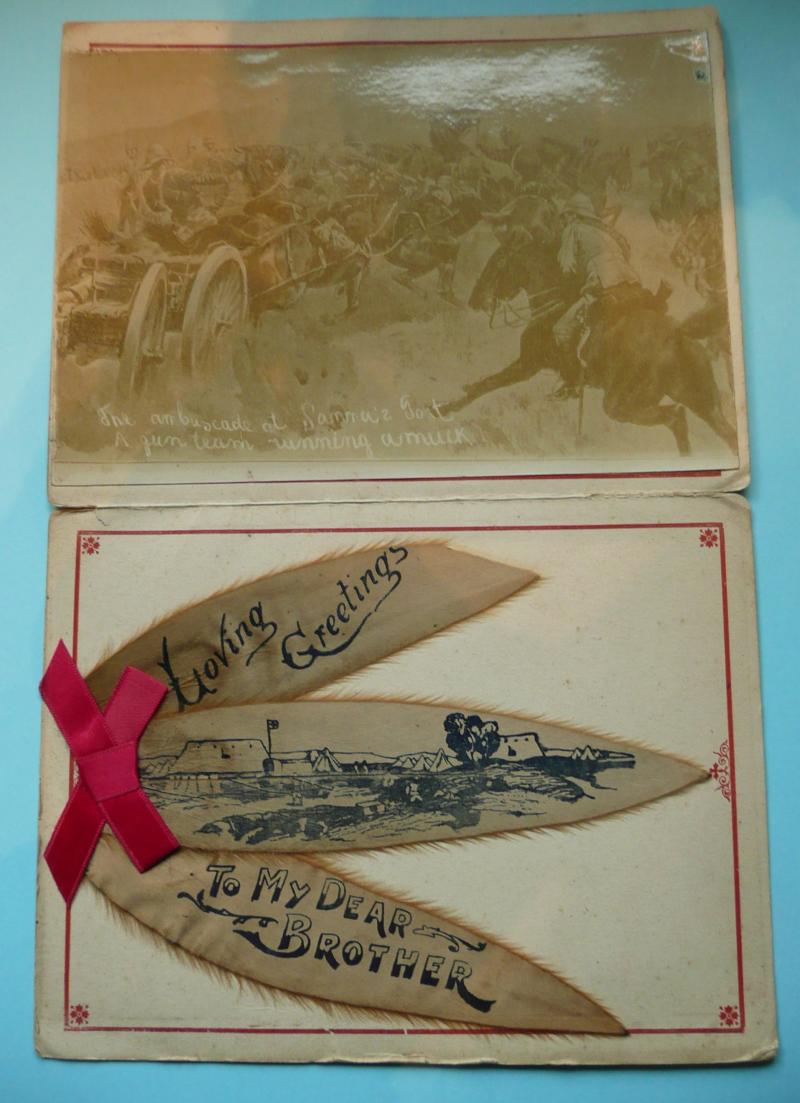 The ambuscade at Sanna's Post
A gun team running amuck
Loving
Greetings
To My Dear
Brother